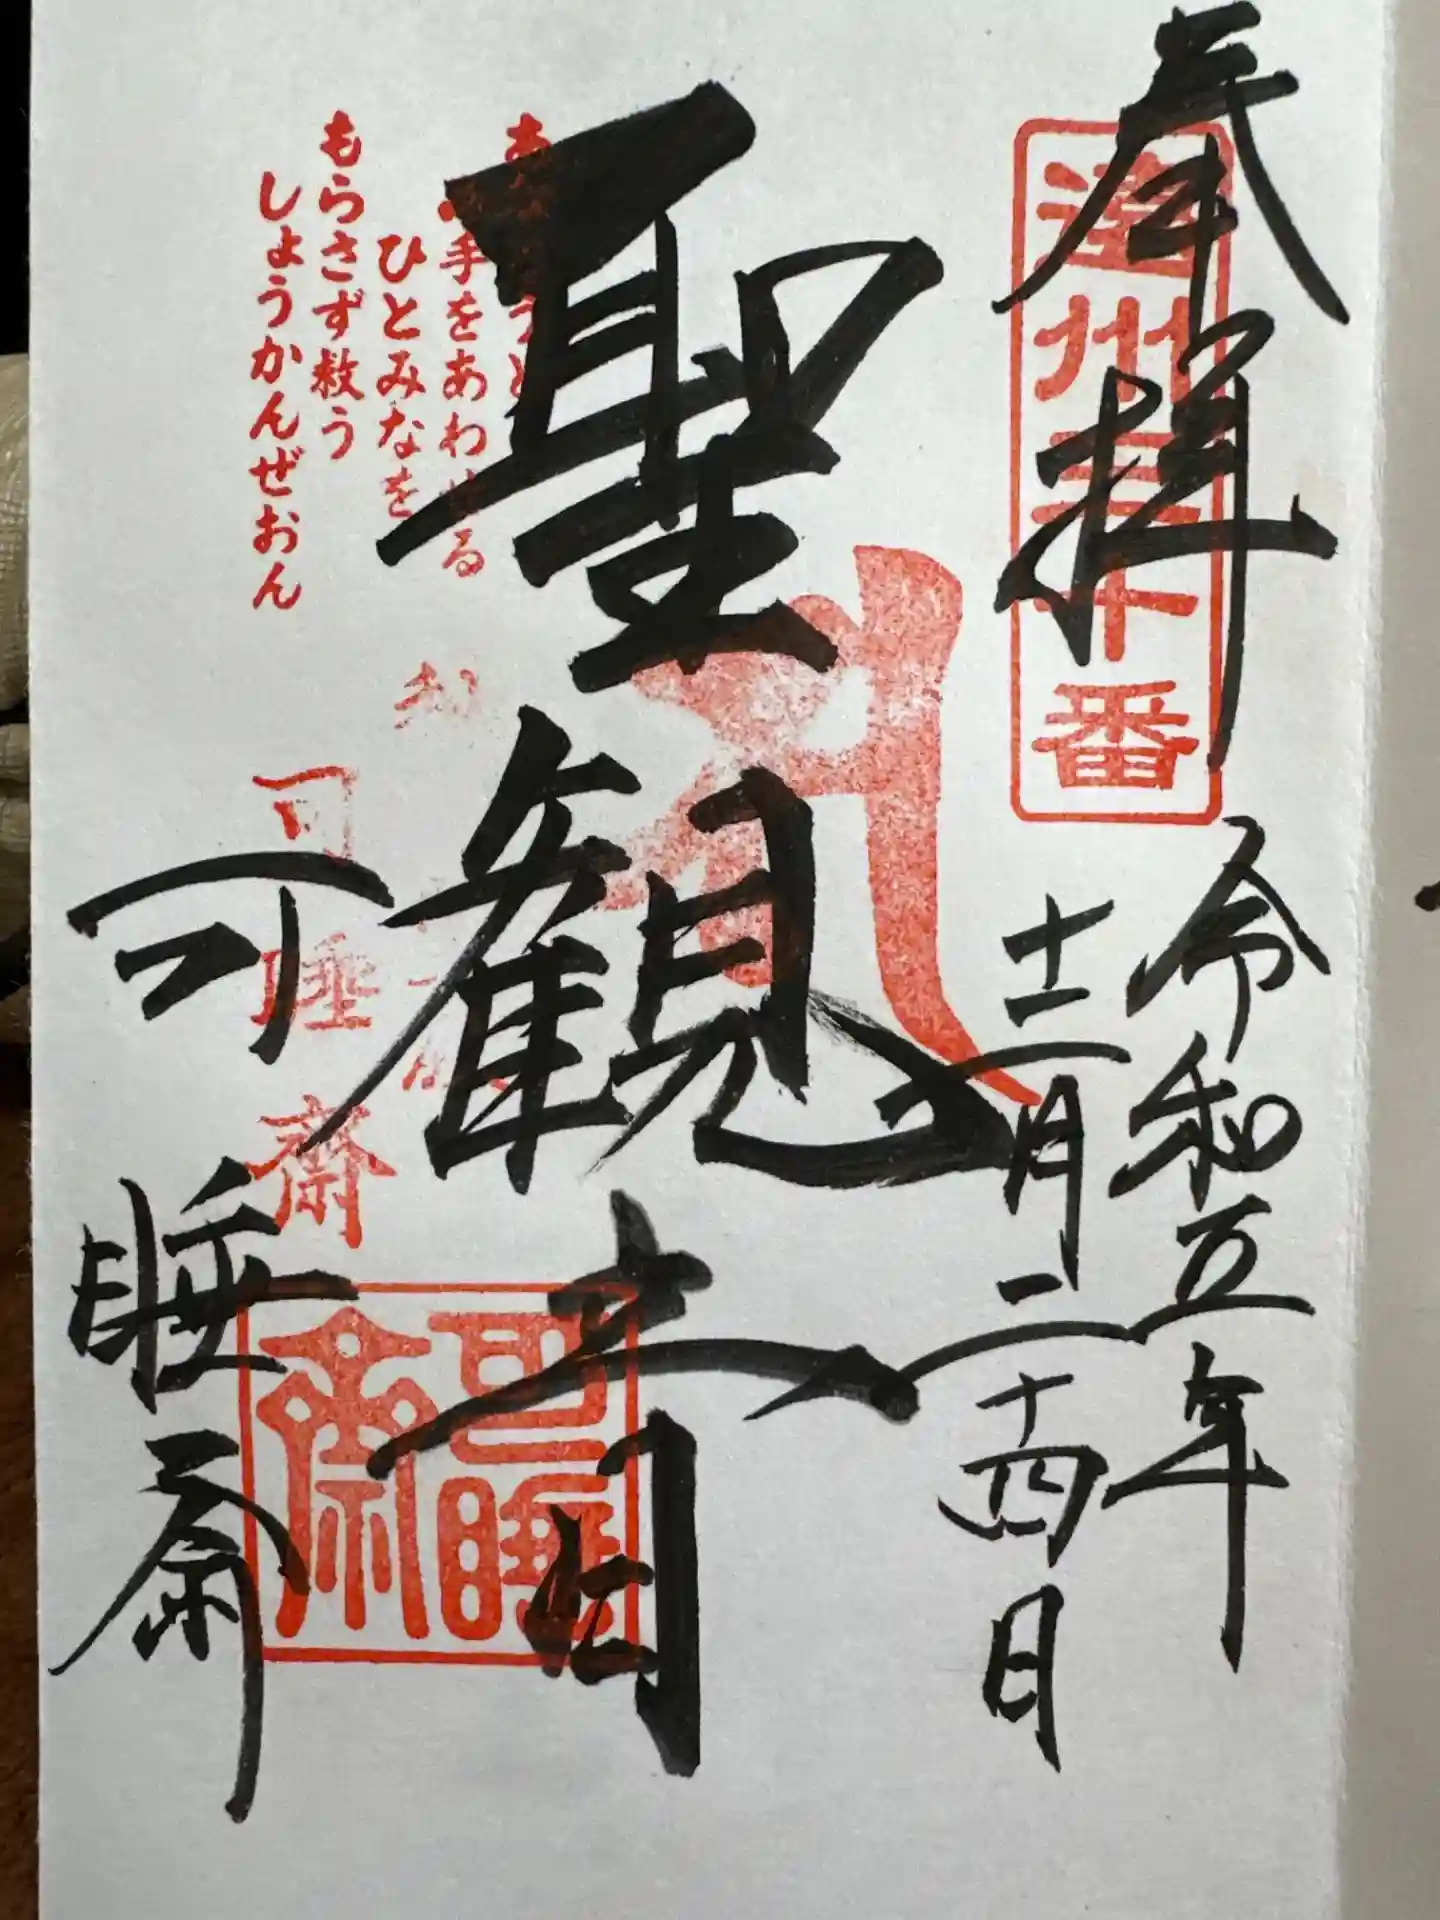 奉拝
遠州三十三番
令和五年
十二月二十四日
聖観世音
手をあわせる
ひとみなを
もらさず救う
しょうかんぜおん
可睡斎
可睡斎
可睡斎